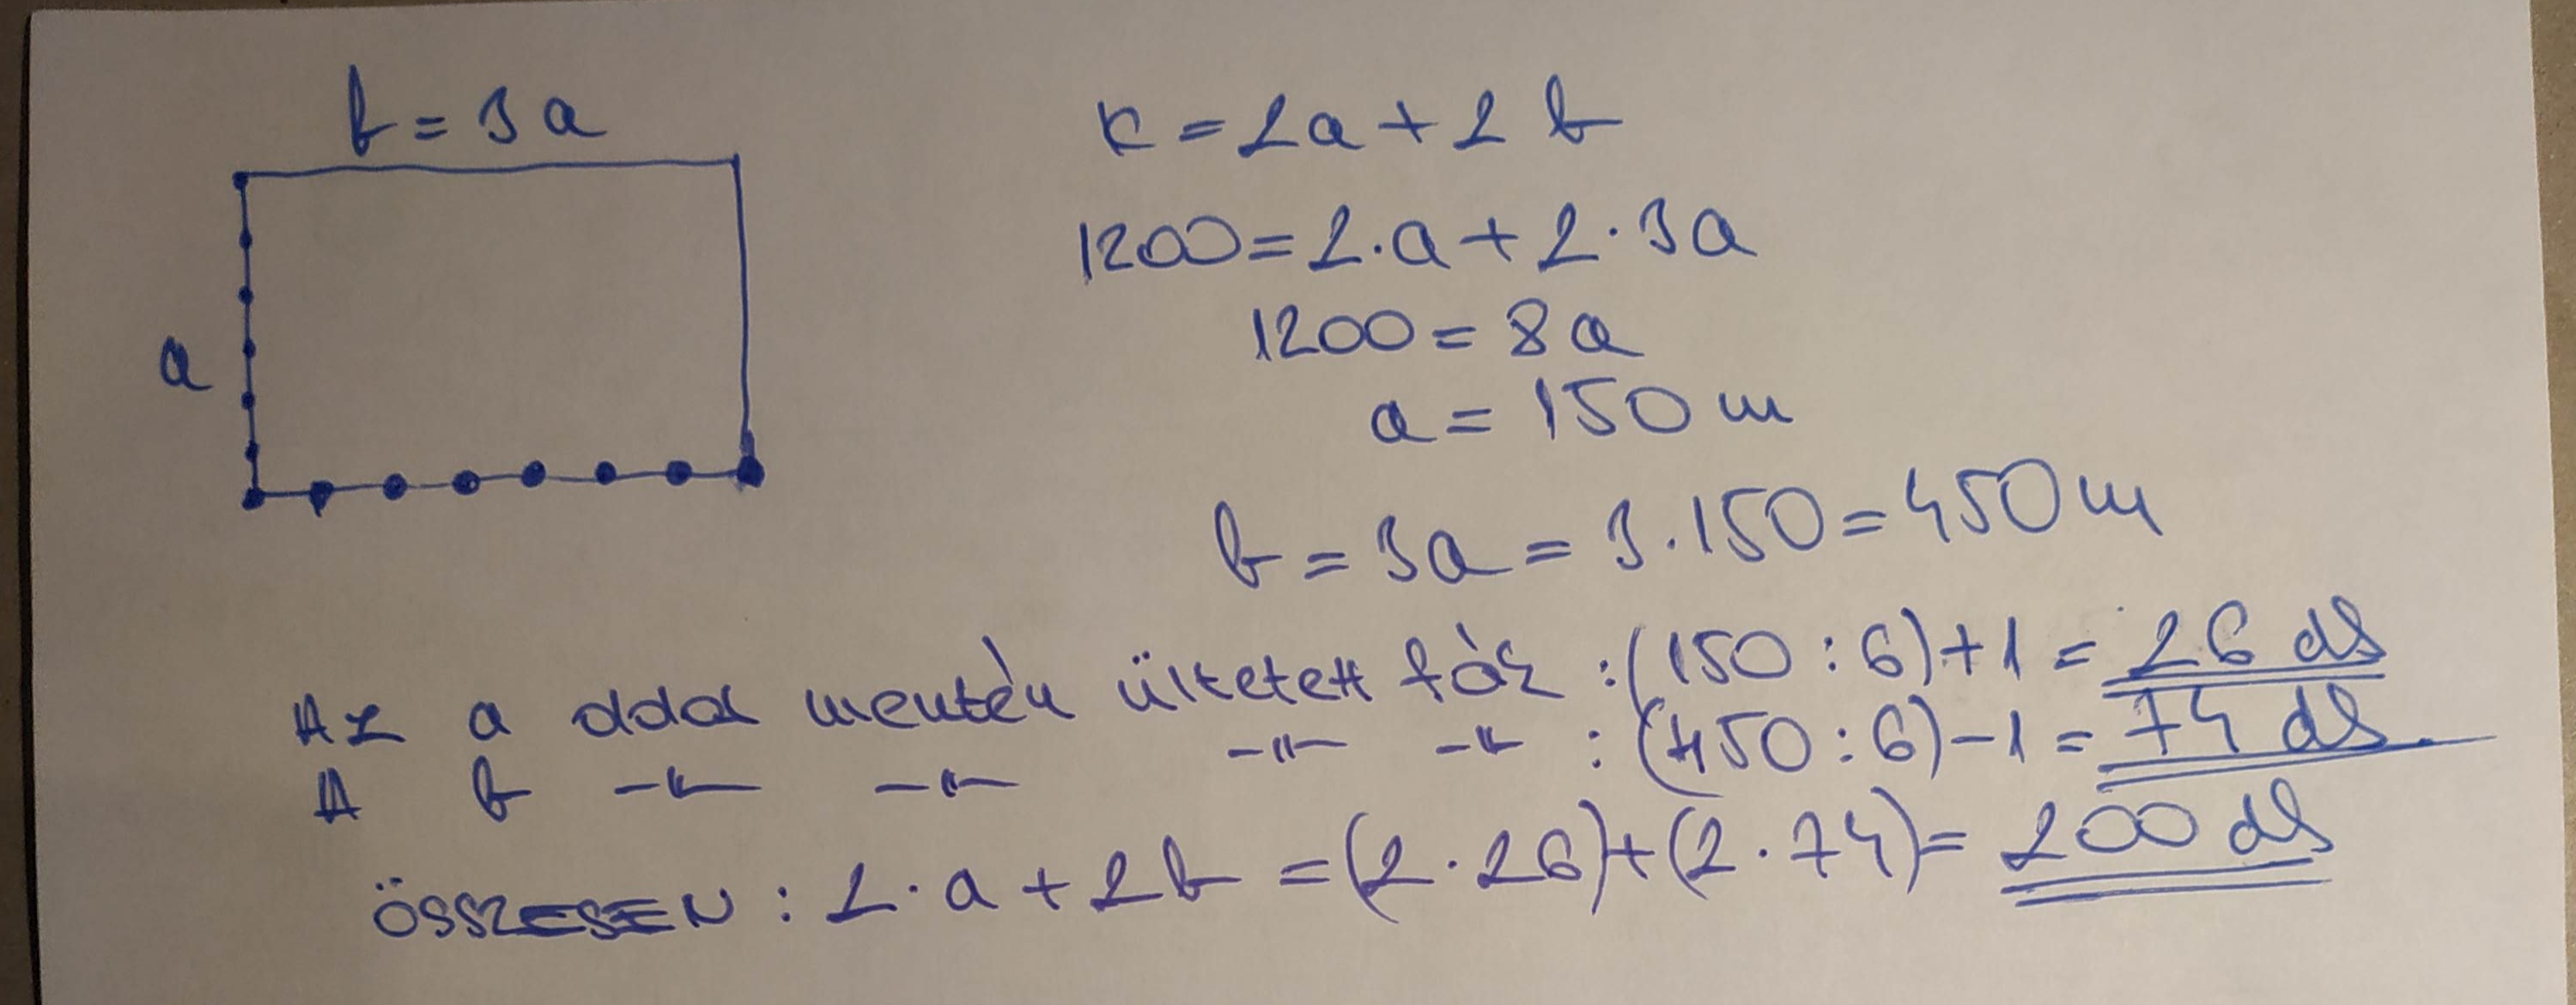 b = 3a
a
K = 2a + 2b
1200 = 2·a + 2·3a
1200 = 8a
a = 150 m
b = 3a = 3·150 = 450 m
Az a oldal mentén ültetett fák : (150 : 6) + 1 = 26 db
A b -"- -"- -"- -"- : (450 : 6) - 1 = 74 db.
ÖSSZESEN : 2·a + 2b = (2·26) + (2·74) = 200 db